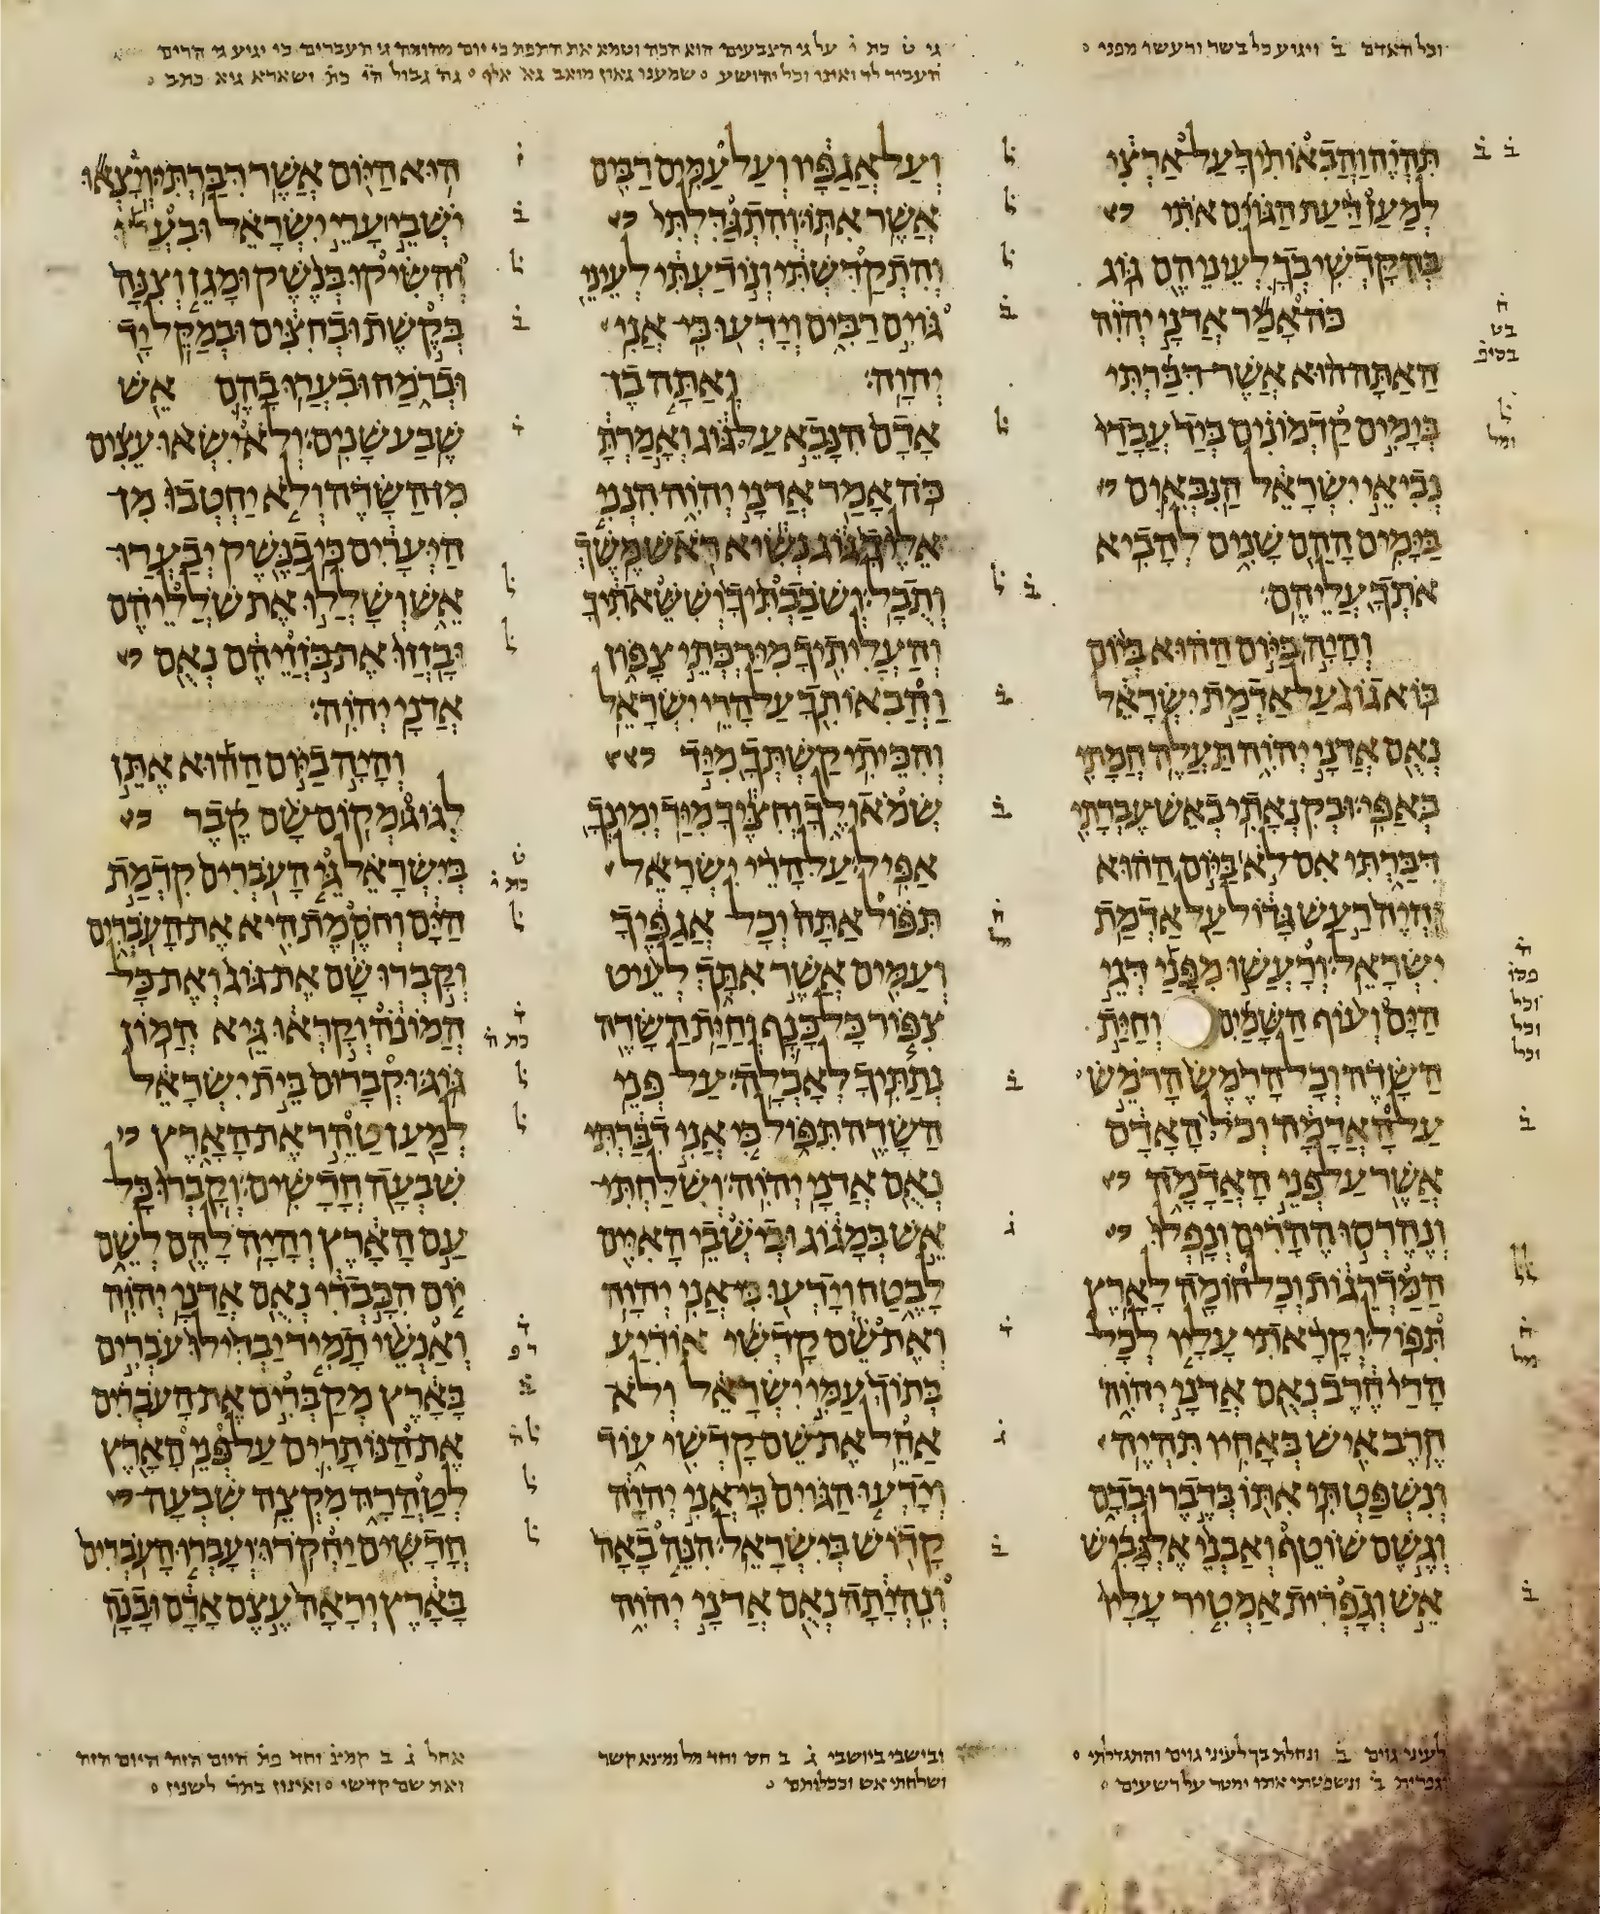 וכל האדם ב ויגוע כל בשר ורעשו מפני
גי ט כת י על גי הצבעים הוא הכה וטמא את התפת כי יום מהומה גי העברים כי יגיע גי הרים
שמענו גאון מואב גא
תהיה והבאותיך על ארצי
למען דעת הגוים אתי
בהקדשי בך לעיניהם גוג
כה אמר אדני יהוה
האתה הוא אשר דברתי
בימים קדמונים ביד עבדי
נביאי ישראל הנבאים
בימים ההם שנים להביא
אתך עליהם׃
והיה ביום ההוא ביום
בוא גוג על אדמת ישראל
נאם אדני יהוה תעלה חמתי
באפי׃ ובקנאתי באש עברתי
דברתי אם לא ביום ההוא
יהיה רעש גדול על אדמת
ישראל׃ ורעשו מפני דגי
הים ועוף השמים וחית
השדה וכל הרמש הרמש
על האדמה וכל האדם
אשר על פני האדמה
ונהרסו ההרים ונפלו
המדרגות וכל חומה לארץ
תפול׃ וקראתי עליו לכל
הרי חרב נאם אדני יהוה
חרב איש באחיו תהיה
ונשפטתי אתו בדבר ובדם
וגשם שוטף ואבני אלגביש
אש וגפרית אמטיר עליו
ועל אגפיו ועל עמים רבים
אשר אתו׃ והתגדלתי
והתקדשתי ונודעתי לעיני
גוים רבים וידעו כי אני
יהוה׃ ואתה בן
אדם הנבא על גוג ואמרת
כה אמר אדני יהוה הנני
אליך גוג נשיא ראש משך
ותבל׃ ושבבתיך וששאתיך
והעליתיך מירכתי צפון
והבאותך על הרי ישראל
והכיתי קשתך מיד
שמאולך וחציך מיד ימינך
אפיל׃ על הרי ישראל
תפול אתה וכל אגפיך
ועמים אשר אתך לעיט
צפור כל כנף וחית השדה
נתתיך לאכלה׃ על פני
השדה תפול כי אני דברתי
נאם אדני יהוה׃ ושלחתי
אש במגוג ובישבי האיים
לבטח וידעו כי אני יהוה
ואת שם קדשי אודיע
בתוך עמי ישראל ולא
אחל את שם קדשי עוד
וידעו הגוים כי אני יהוה
קדוש בישראל׃ הנה באה
ונהיתה נאם אדני יהוה
הוא היום אשר דברתי׃ ויצאו
ישבי ערי ישראל ובערו
והשיקו בנשק ומגן וצנה
בקשת ובחצים ובמקל יד
וברמח ובערו בהם אש
שבע שנים׃ ולא ישאו עצים
מן השדה ולא יחטבו מן
היערים כי בנשק יבערו
אש ושללו את שלליהם
ובזזו את בזזיהם נאם
אדני יהוה׃
והיה ביום ההוא אתן
לגוג מקום שם קבר
בישראל גי העברים קדמת
הים וחסמת היא את העברים
וקברו שם את גוג ואת כל
המונה וקראו גיא המון
גוג׃ וקברום בית ישראל
למען טהר את הארץ
שבעה חדשים׃ וקברו כל
עם הארץ והיה להם לשם
יום הכבדי נאם אדני יהוה
ואנשי תמיד יבדילו עברים
בארץ מקברים את העברים
את הנותרים על פני הארץ
לטהרה מקצה שבעה
חדשים יחקרו׃ ועברו העברים
בארץ וראה עצם אדם ובנה
לעיני גוים ב ונחלת בך לעיני גוים והתגדלתי
וגפרית ב ונשפטתי אתו ימטר על רשעים
ובישבי ביושבי ג ב חס וחד מל נמצא קשר
ושלחתי אש וככלותם
אחל ג ב קמצ וחד פת היום הזה היום הזה
ואת שם קדשי